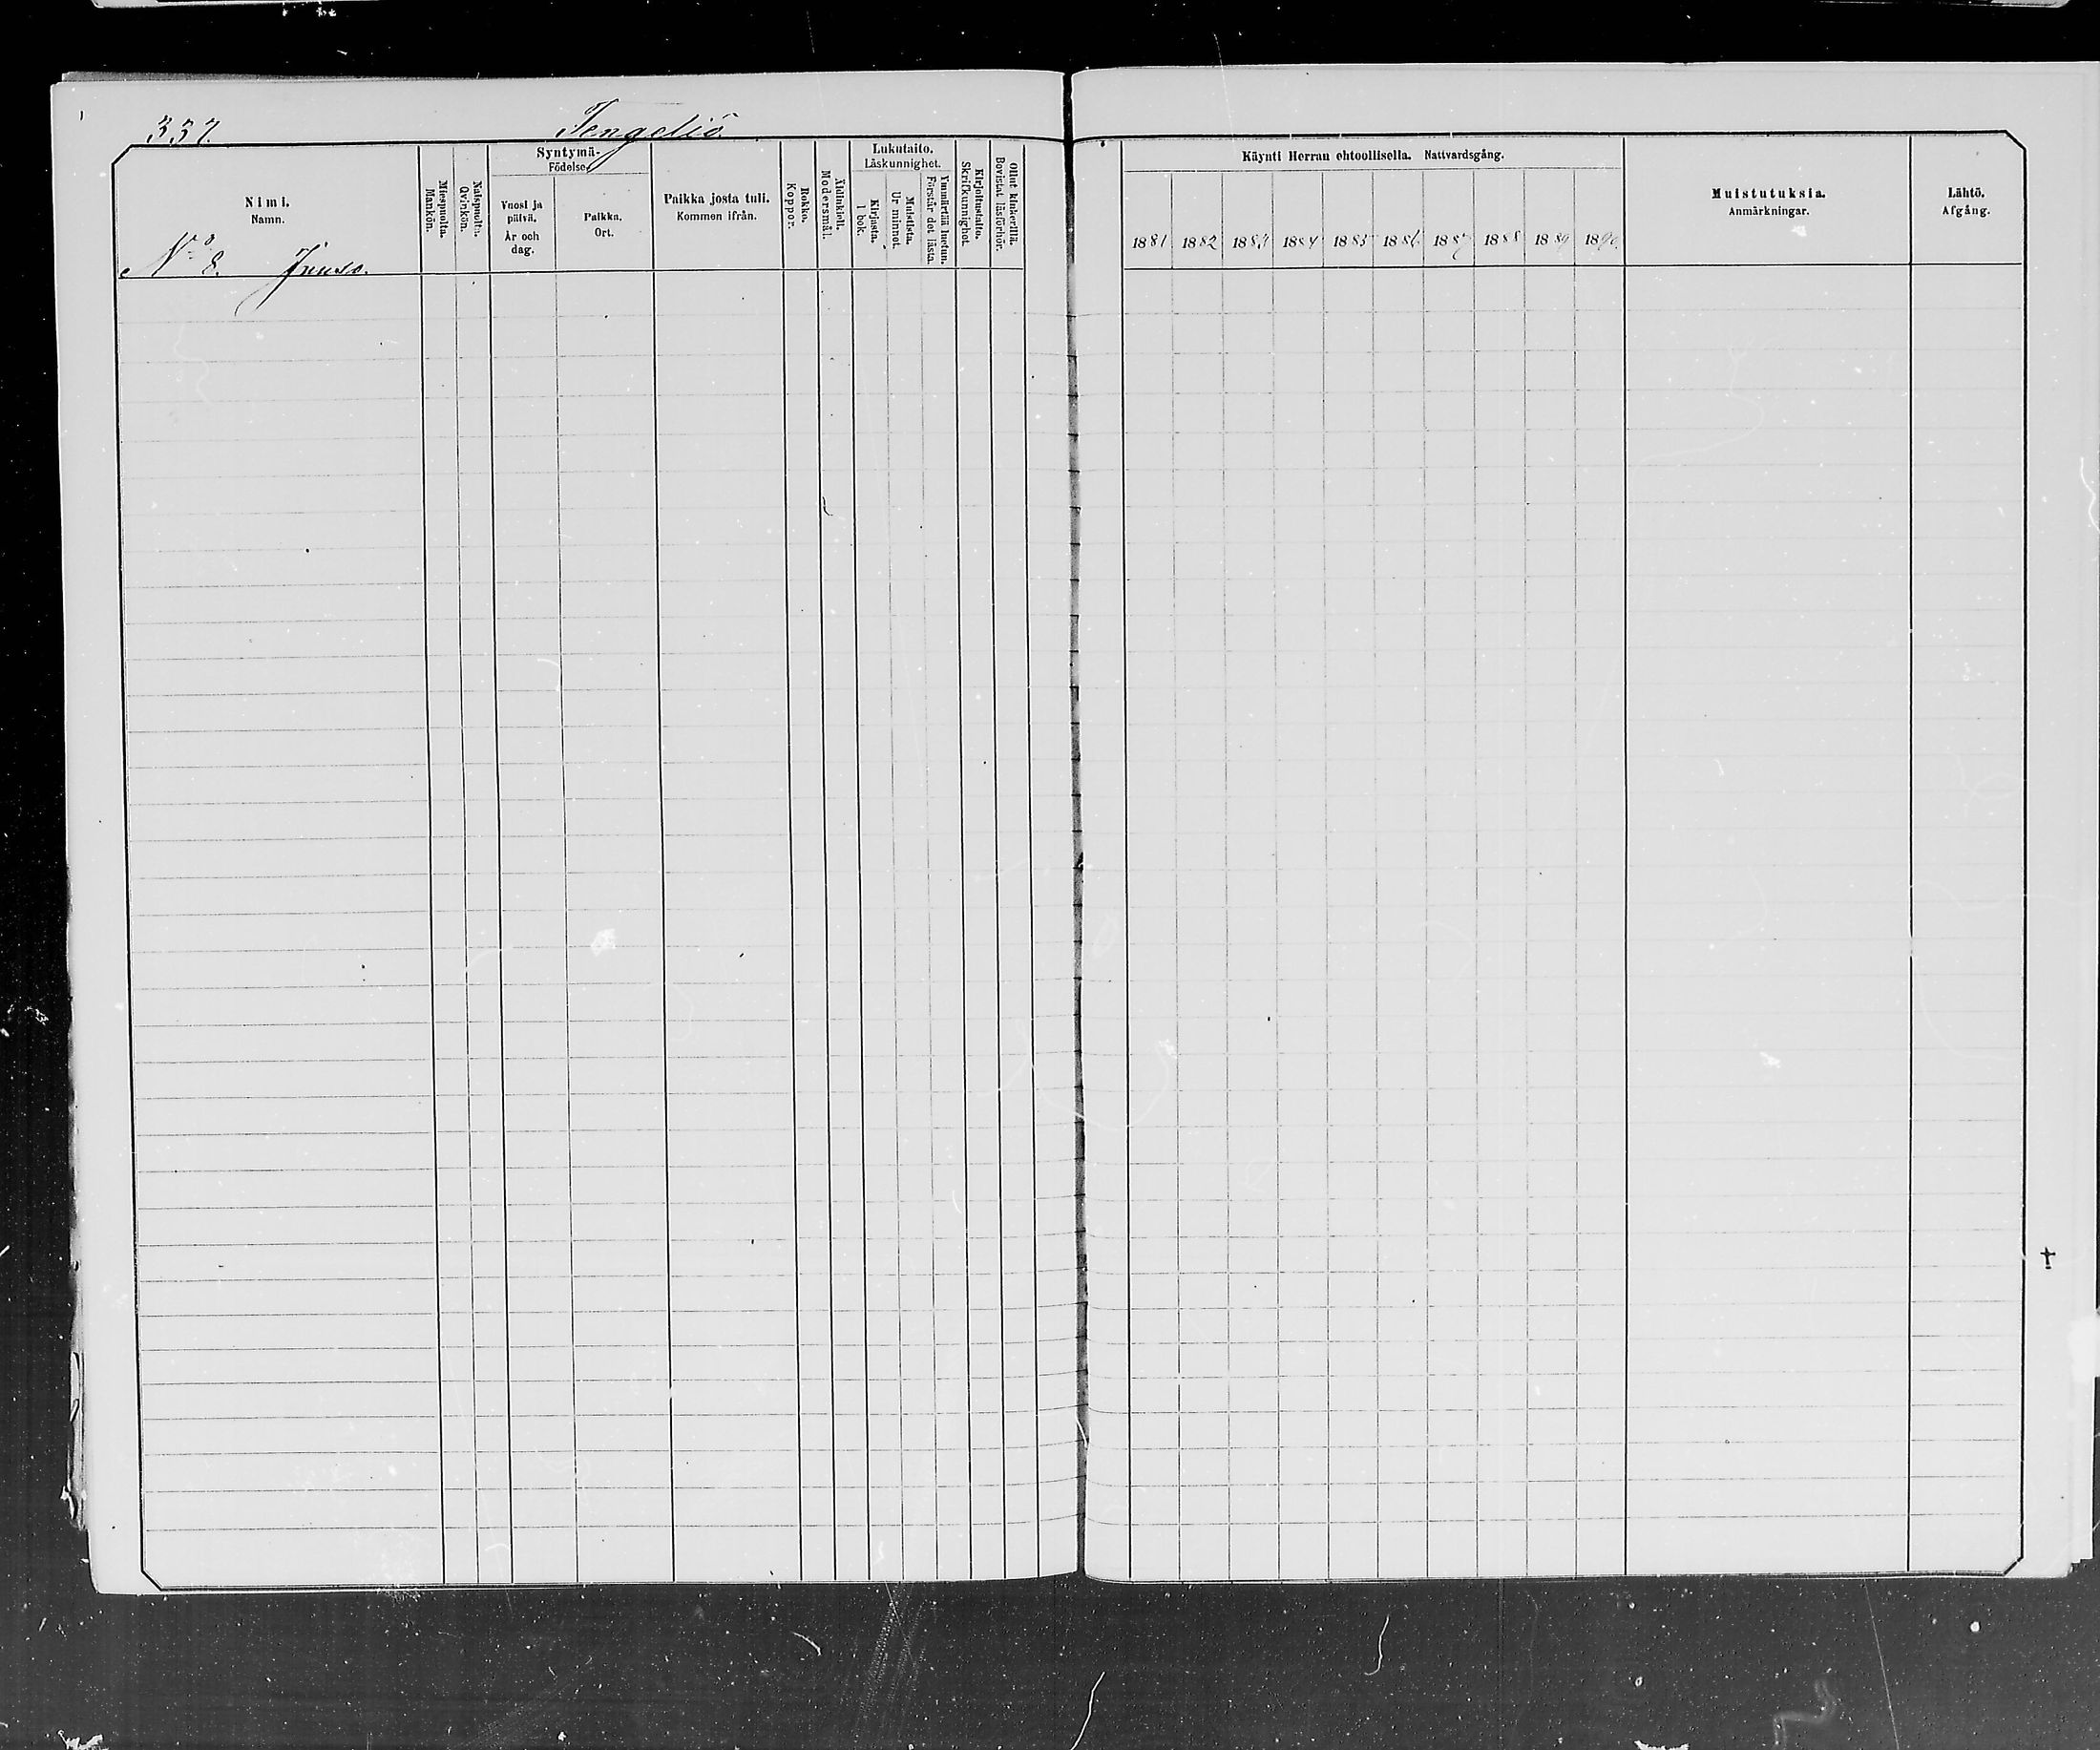 337. Tengeliö
Syntymä-
Födelse-
Lukutaito.
Läskunnighet.
Käynti Herran ehtoollisella. Nattvardsgång.
Nimi.
Namn.
Miespuolia.
Mankön.
Naispuolia.
Qvinkön.
Vuosi ja
päivä.
År och
dag.
Paikka.
Ort.
Paikka josta tuli.
Kommen ifrån.
Rokko.
Koppor.
Äidinkieli.
Modersmål.
Kirjasta.
I bok.
Muistista.
Ur minnet.
Ymmärtää luetun.
Förstår det lästa.
Kirjoitustaito.
Skrifkunnighet.
Ollut kinkerillä.
Bevistat läsförhör.
1881 1882 1883 1884 1885 1886 1887 1888 1889 1890
Muistutuksia.
Anmärkningar.
Lähtö.
Afgång.
No 8. Juuso.